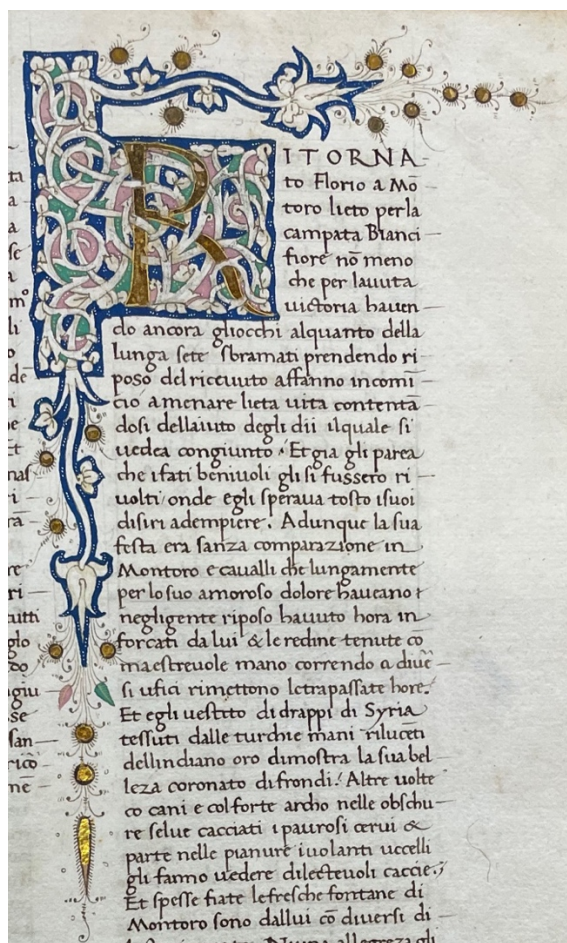 ta
a
se
a
mº
li
o
dē
ri
Et
ri
rā
re
ri
glo
do
giu
se
san
nē
RITORNA
to Florio a Mō
toro lieto per la
campata Bianci
fiore nō meno
che per lauuta
uictoria hauen
do ancora gliocchi alquanto della
lunga sete sbramati prendendo ri
poso del riceuuto affanno incomi
cio amenare lieta uita contentā
dosi dellaiuto degli dii ilquale si
uedea congiunto / Et gia gli parea
che ifati beniuoli gli si fussero ri
uolti onde egli speraua tosto isuoi
disiri adempiere. Adunque la sua
festa era sanza comparazione in
Montoro e caualli che lungamente
per lo suo amoroso dolore haueano
negligente riposo hauuto hora in
forcati da lui & le redine tenute co
maestreuole mano correndo a diue
si ufici rimettono letrapassate hore.
Et egli uestito di drappi di Syria
tessuti dalle turchie mani rilucēti
dellindiano oro dimostra la sua bel
leza coronato di frondi. Altre uolte
co cani e col forte archo nelle obschu
re selue cacciati i paurosi cerui &
parte nelle pianure iuolanti uccelli
gli fanno uedere dilecteuoli caccie.
Et spesse fiate le fresche fontane di
Montoro sono dallui cō diuersi di